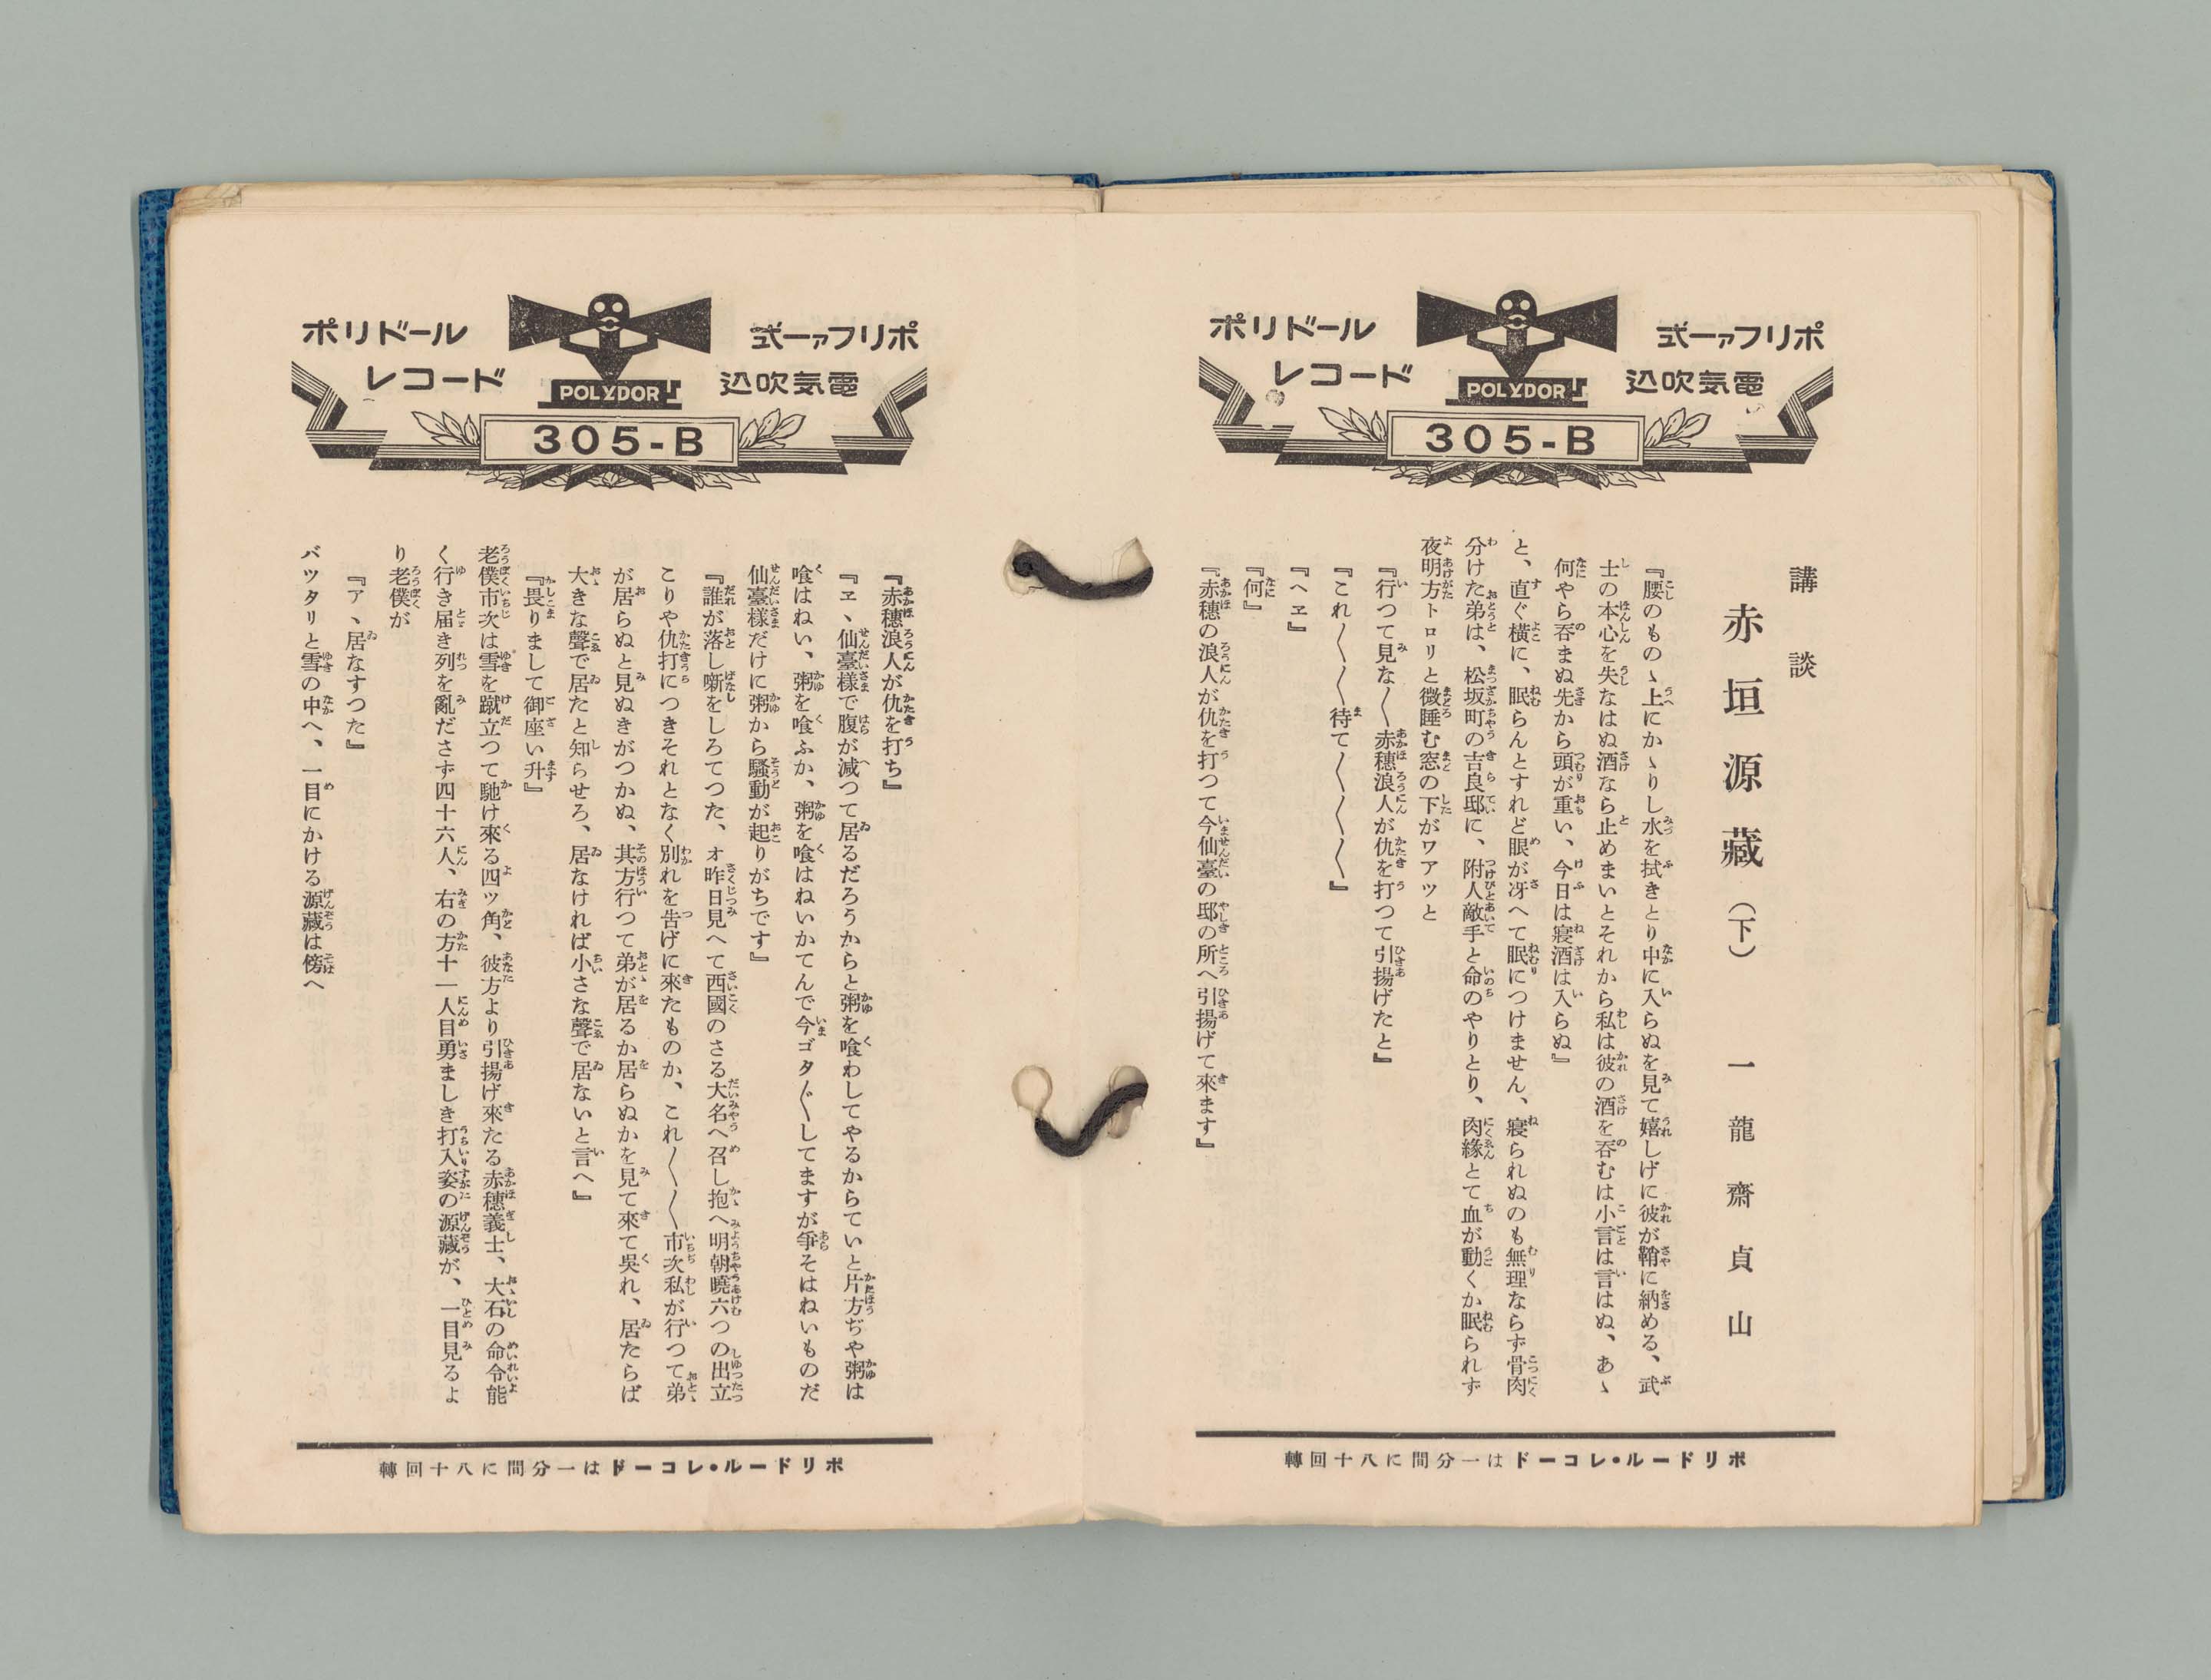 ポリドール
レコード
ポリファー式
電気吹込
POLYDOR
305-B
講談
赤垣源藏（下）
一龍齋貞山
『腰のものゝ上にかゝりし水を拭きとり中に入らぬを見て嬉しげに彼が鞘に納める、武
士の本心を失なはぬ酒なら止めまいとそれから私は彼の酒を呑むは小言は言はぬ、あゝ
何やら呑まぬ先から頭が重い、今日は寢酒は入らぬ』
と、直ぐ横に、眠らんとすれど眼が冴へて眠につけません、寢られぬのも無理ならず骨肉
分けた弟は、松坂町の吉良邸に、附人敵手と命のやりとり、肉緣とて血が動くか眠られず
夜明方トロリと微睡む窓の下がワアツと
『行つて見な〱赤穗浪人が仇を打つて引揚げたと』
『これ〱〱待て〱〱〱』
『ヘエ』
『何』
『赤穗の浪人が仇を打つて今仙臺の邸の所へ引揚げて來ます』
ポリドール・レコードは一分間に八十回轉
ポリドール
レコード
ポリファー式
電気吹込
POLYDOR
305-B
『赤穗浪人が仇を打ち』
『ヱ、仙臺樣で腹が減つて居るだろうからと粥を喰わしてやるからていと片方ぢや粥は
喰はねい、粥を喰ふか、粥を喰はねいかてんで今ゴタ〲してますが爭そはねいものだ
仙臺樣だけに粥から騷動が起りがちです』
『誰が落し噺をしろてつた、オ昨日見へて西國のさる大名へ召し抱へ明朝曉六つの出立
こりや仇打につきそれとなく別れを告げに來たものか、これ〱〱市次私が行つて弟
が居らぬと見ぬきがつかぬ、其方行つて弟が居るか居らぬかを見て來て吳れ、居たらば
大きな聲で居たと知らせろ、居なければ小さな聲で居ないと言へ』
『畏りまして御座い升』
老僕市次は雪を蹴立つて馳け來る四ツ角、彼方より引揚げ來たる赤穗義士、大石の命令能
く行き届き列を亂ださず四十六人、右の方十一人目勇ましき打入姿の源藏が、一目見るよ
り老僕が
『ア、居なすつた』
バツタリと雪の中へ、一目にかける源藏は傍へ
ポリドール・レコードは一分間に八十回轉